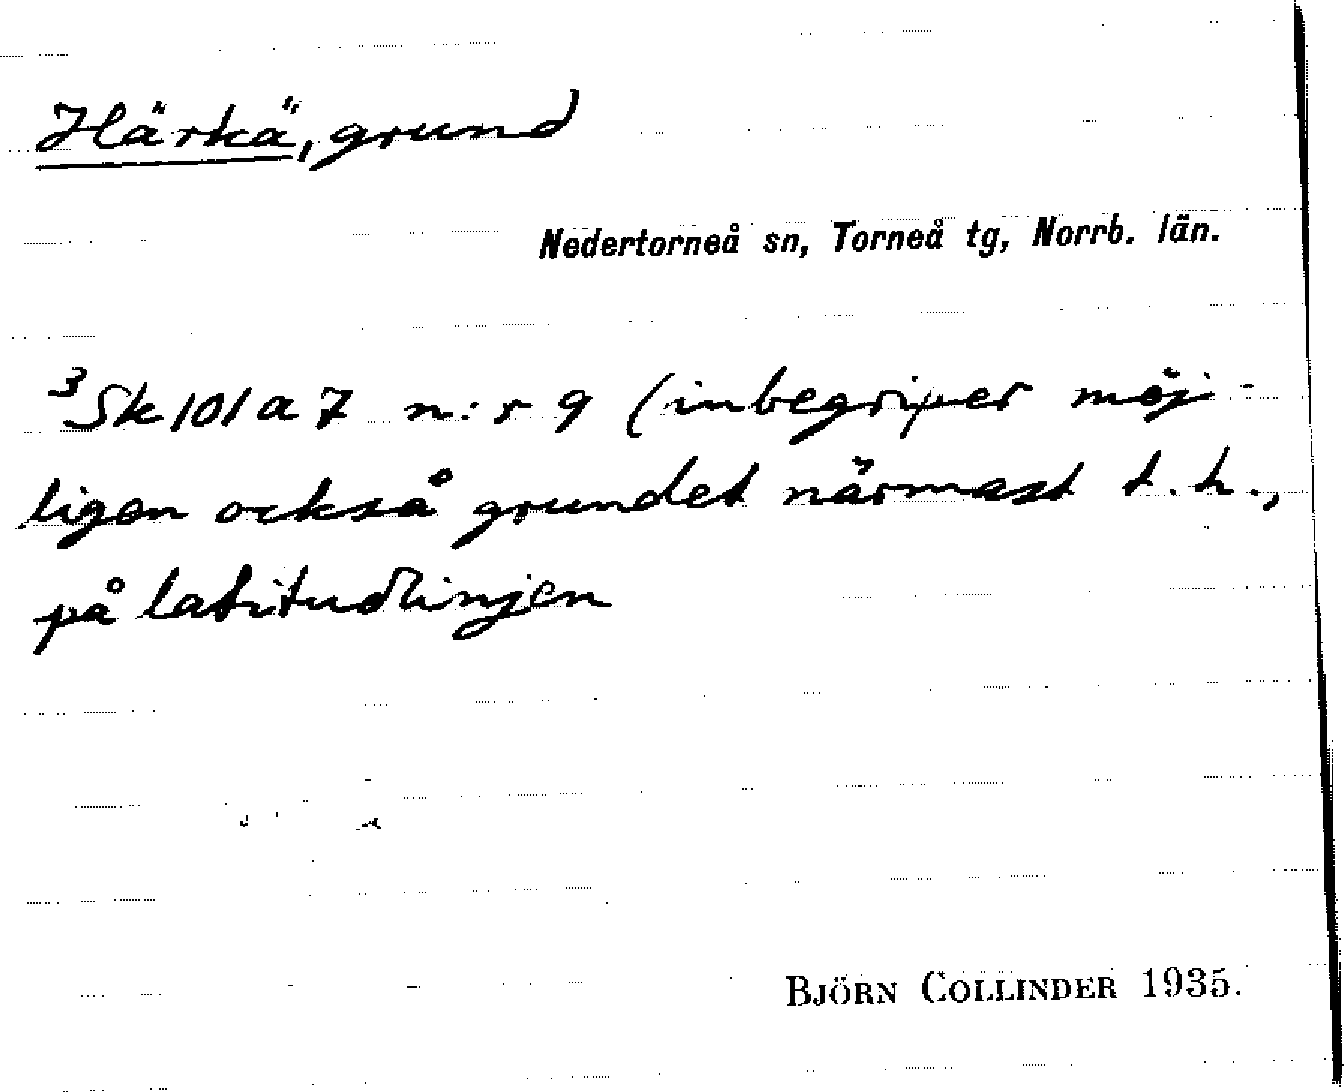 Härkä, grund
Nedertorneå sn, Torneå tg, Norrb. län.
³Sk101a7 n:r 9 (inbegriper möj-
ligen också grundet närmast t.h.,
på latitudlinjen
BJÖRN COLLINDER 1935.